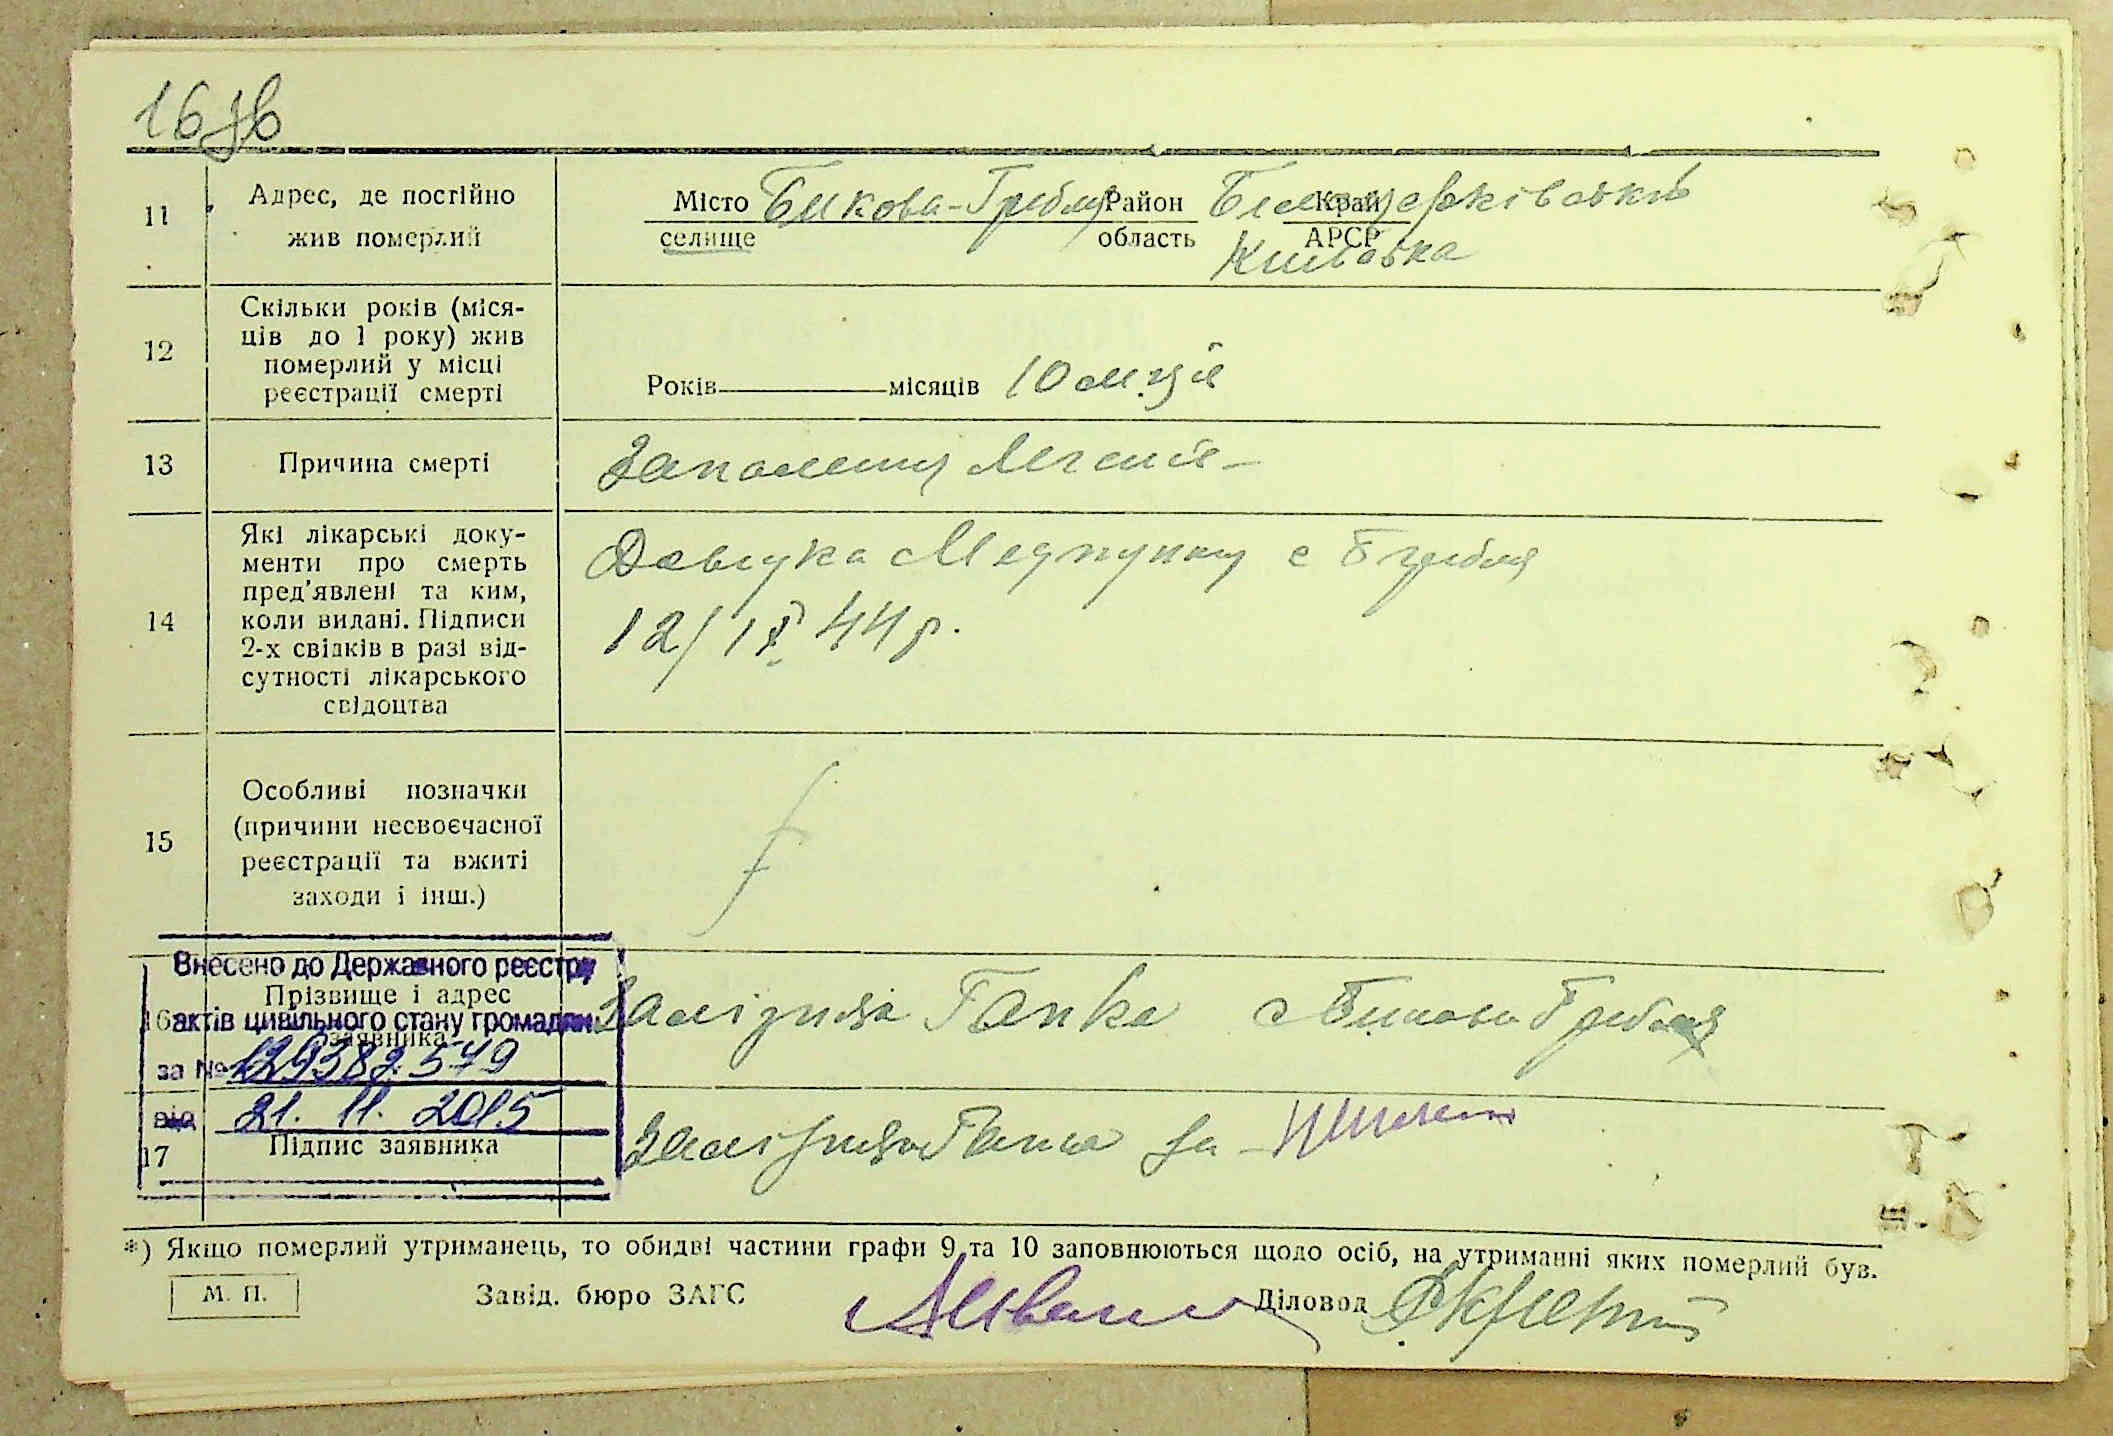 16зв
11 Адрес, де постійно жив померлий
Місто Бикова-Гребля Район Білоцерківський Край
селище область Київська АРСР
12 Скільки років (місяців до 1 року) жив померлий у місці реєстрації смерті
Років — місяців 10 місяців
13 Причина смерті
Запалення Легенів
14 Які лікарські документи про смерть пред'явлені та ким, коли видані. Підписи 2-х свідків в разі відсутності лікарського свідоцтва
Довідка Медпункту с Б гребля
12/IX 44 р.
15 Особливі позначки (причини несвоєчасної реєстрації та вжиті заходи і інш.)
Внесено до Державного реєстру
актів цивільного стану громадян
за № 129382579
від 21. 11. 2015
16 Прізвище і адрес заявника
Ганка с Бикова Гребля
17 Підпис заявника
за
*) Якщо померлий утриманець, то обидві частини графи 9 та 10 заповнюються щодо осіб, на утриманні яких померлий був.
М. П. Завід. бюро ЗАГС Діловод